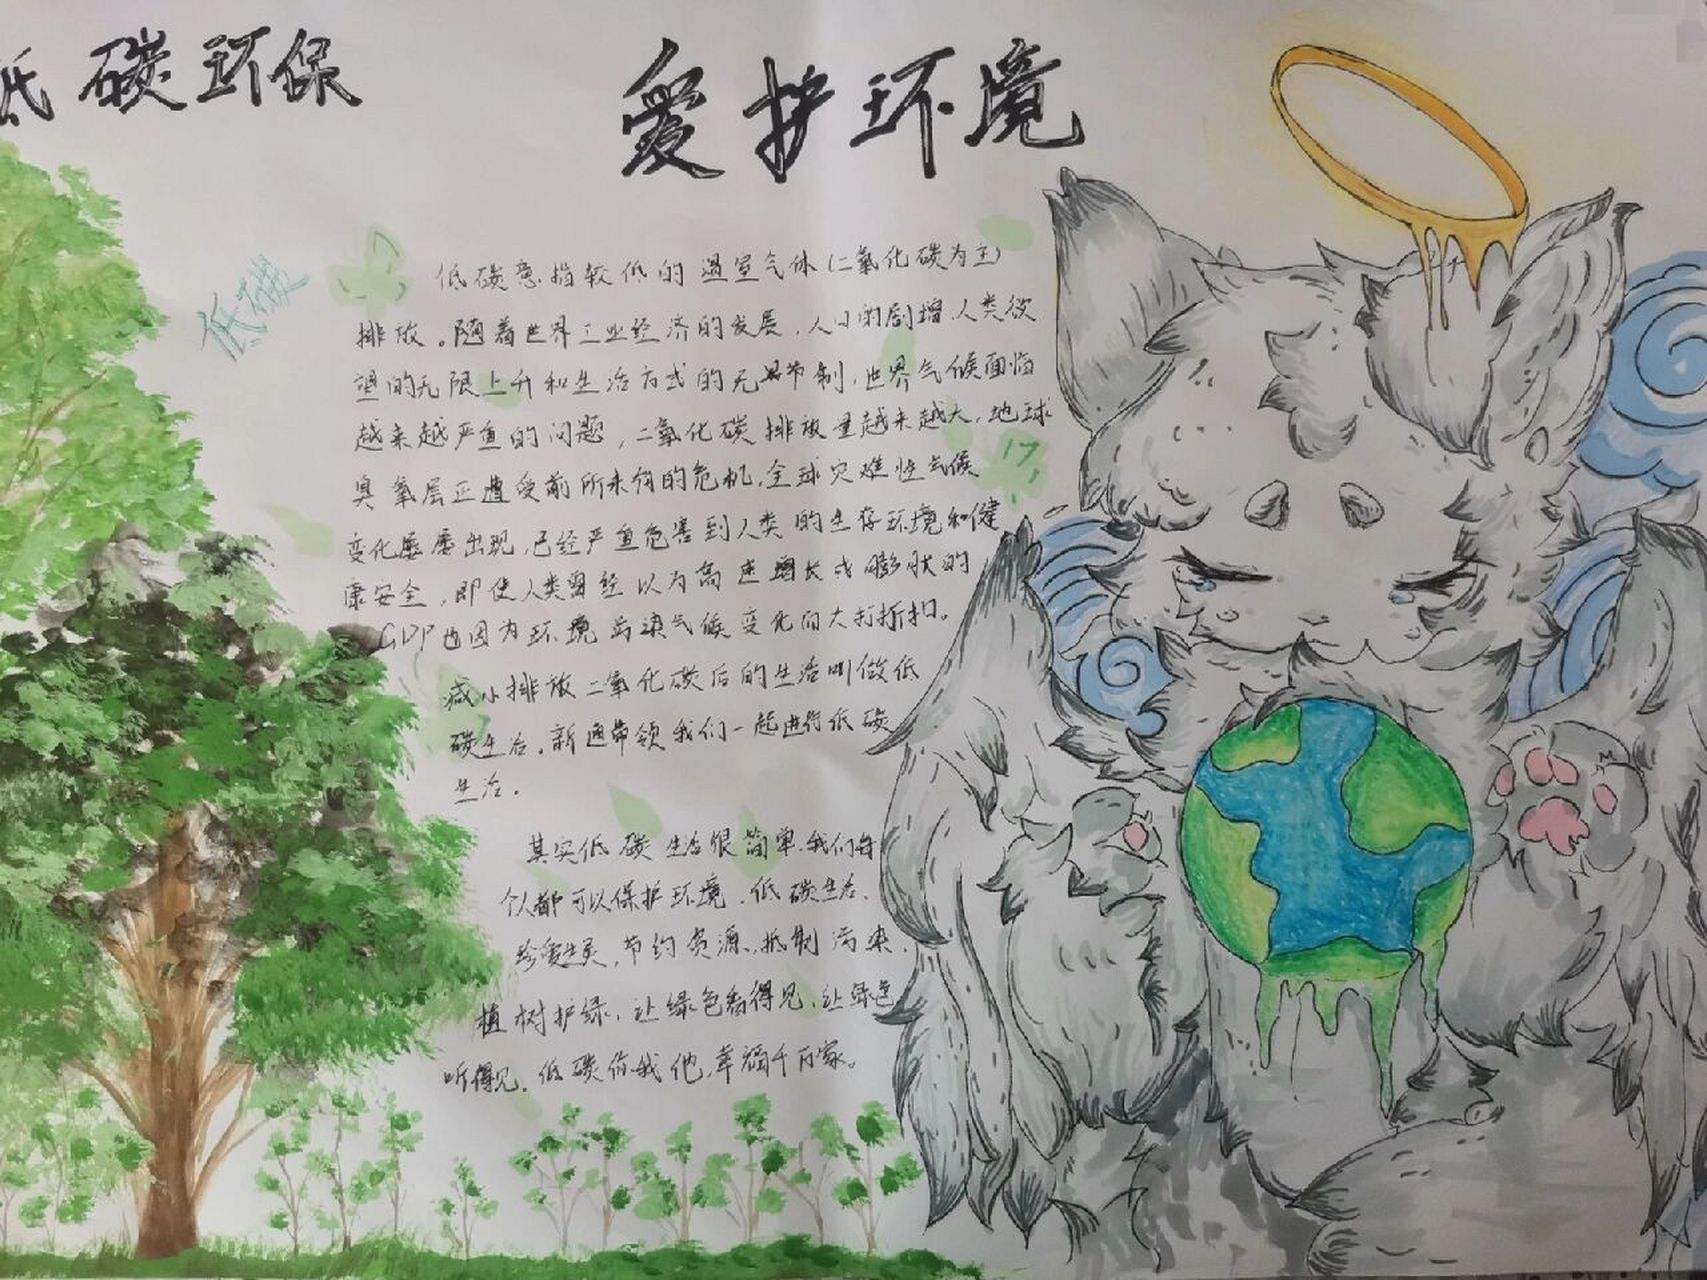 低碳环保
爱护环境
低碳
低碳意指较低的温室气体(二氧化碳为主)
排放。随着世界工业经济的发展,人口的剧增,人类欲
望的无限上升和生活方式的无节制,世界气候面临
越来越严重的问题,二氧化碳排放量越来越大,地球
臭氧层正遭受前所未有的危机,全球灾难性气候
变化屡屡出现,已经严重危害到人类的生存环境和健
康安全,即使人类曾经以为高速增长或膨胀的
GDP也因为环境污染气候变化而大打折扣。
减小排放二氧化碳后的生活叫做低
碳生活。新通带领我们一起进行低碳
生活。
其实低碳生活很简单,我们每
个人都可以保护环境、低碳生活、
珍爱生灵,节约资源,抵制污染,
植树护绿,让绿色看得见,让绿色
听得见。低碳你我他,幸福千万家。